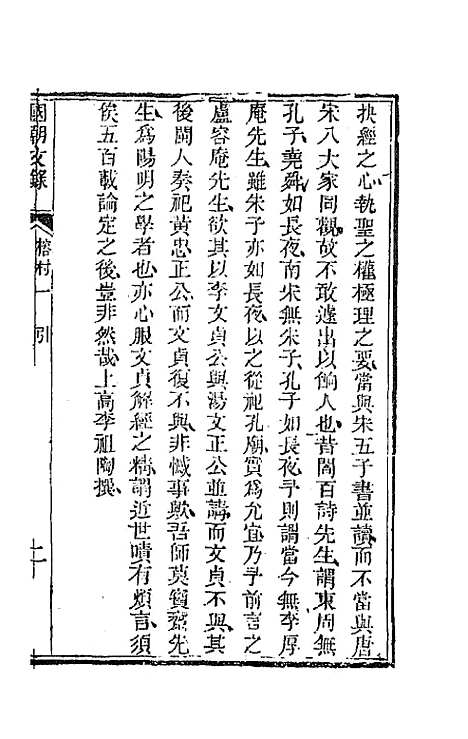 抉經之心執聖之權極理之要當與宋五子書並讀而不當與唐
宋八大家同觀故不敢遽出以餉人也昔閻百詩先生謂東周無
孔子堯舜如長夜南宋無朱子孔子如長夜予則謂當今無李厚
庵先生雖朱子亦如長夜以之從祀孔廟實為允宜乃予前言之
盧容庵先生欲其以李文貞公與湯文正公並請而文貞不與其
後閩人奏祀黃忠正公而文貞復不與非憾事歟吾師莫寶齋先
生為陽明之學者也亦心服文貞解經之精謂近世嘖有煩言須
俟五百載論定之後豈非然哉上高李祖陶撰
國朝文錄
榕村一 引